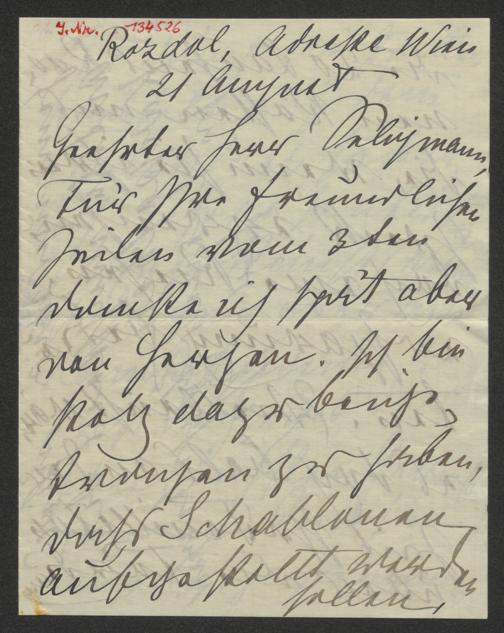 J. Nr. 134526
Rozdol, Adresse Wien
21 August
Geehrter Herr Seligmann,
Für Ihre freundlichen
Zeilen vom 3ten
danke ich spät aber
von Herzen. Ich bin
stolz dazu beige-
tragen zu haben,
daß Schablonen
aufgestellt werden
sollen,